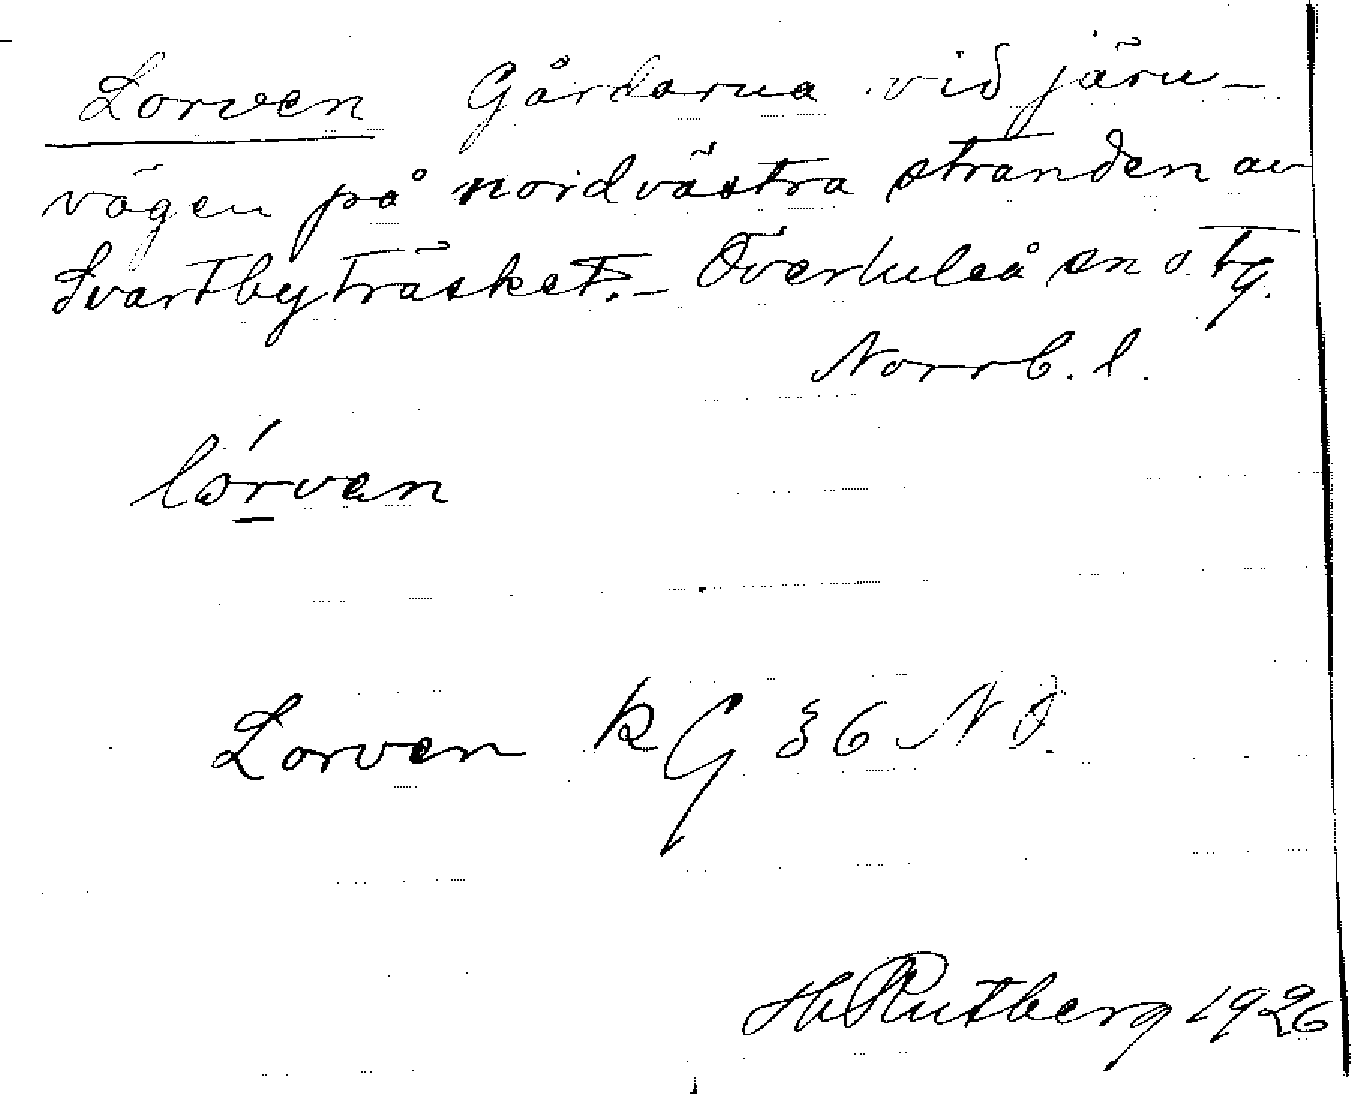 Lorven Gårdarna vid järn-
vägen på nordvästra stranden av
Svartbyträsket. - Överluleå sn o. tg.
Norrb. l.
lórvan
Lorven k G 36 N Ö.
Hb Rutberg 1926